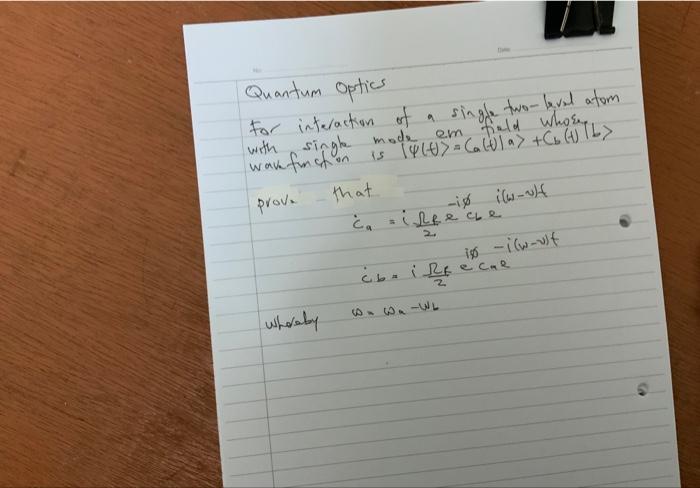 No.
Date
Quantum Optics
For interaction of a single two-level atom
with single mode em field whose
wavefunction is |ψ(t)> = Ca(t)|a> + Cb(t)|b>
prove that
ċa = i ΩR/2 e^-iø cb e^i(ω-ν)t
ċb = i ΩR/2 e^iø ca e^-i(ω-ν)t
whereby ω = ωa - ωb